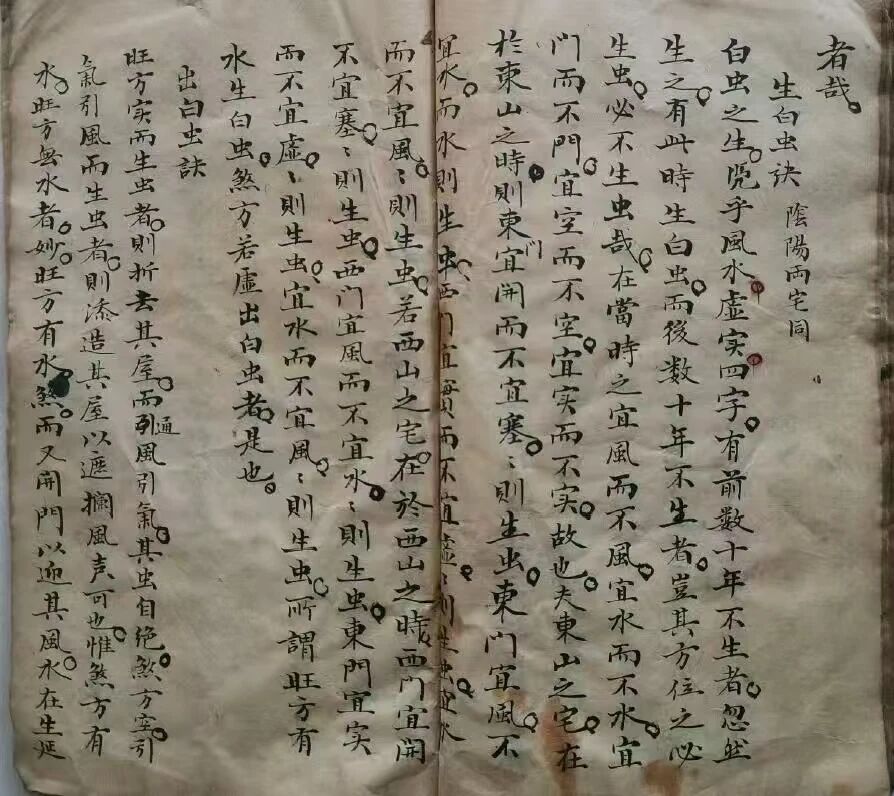 者哉。
生白虫訣　陰陽両宅同
白虫之生。兠乎風水虚实四字。有前数十年不生者。忽然
生之。有此時生白虫。而後数十年不生者。豈其方位之必
生虫。必不生虫哉。在當時之宜風而不風。宜水而不水。宜
门而不門。宜空而不空。宜实而不实。故也。夫東山之宅。在
於東山之時。則東门宜開而不宜塞。〻則生虫。東门宜風。不
宜水。而水則生虫。西门宜實而不宜虚。〻則生虫。宜水
而不宜風。〻則生虫。若西山之宅。在於西山之時。西门宜開
不宜塞。〻則生虫。西门宜風而不宜水。〻則生虫。東門宜实
而不宜虚。〻則生虫。宜水而不宜風。〻則生虫。所謂旺方有
水生白虫。煞方若虚出白虫者。是也。
出白虫訣
旺方实而生虫者。則折去其屋。而通引風引氣。其虫自绝。煞方空。引
氣引風而生虫者。則添造其屋以遮攔風声可也。惟煞方有
水。旺方無水者。妙。旺方有水。煞。而又開門以迎其風水。在生延